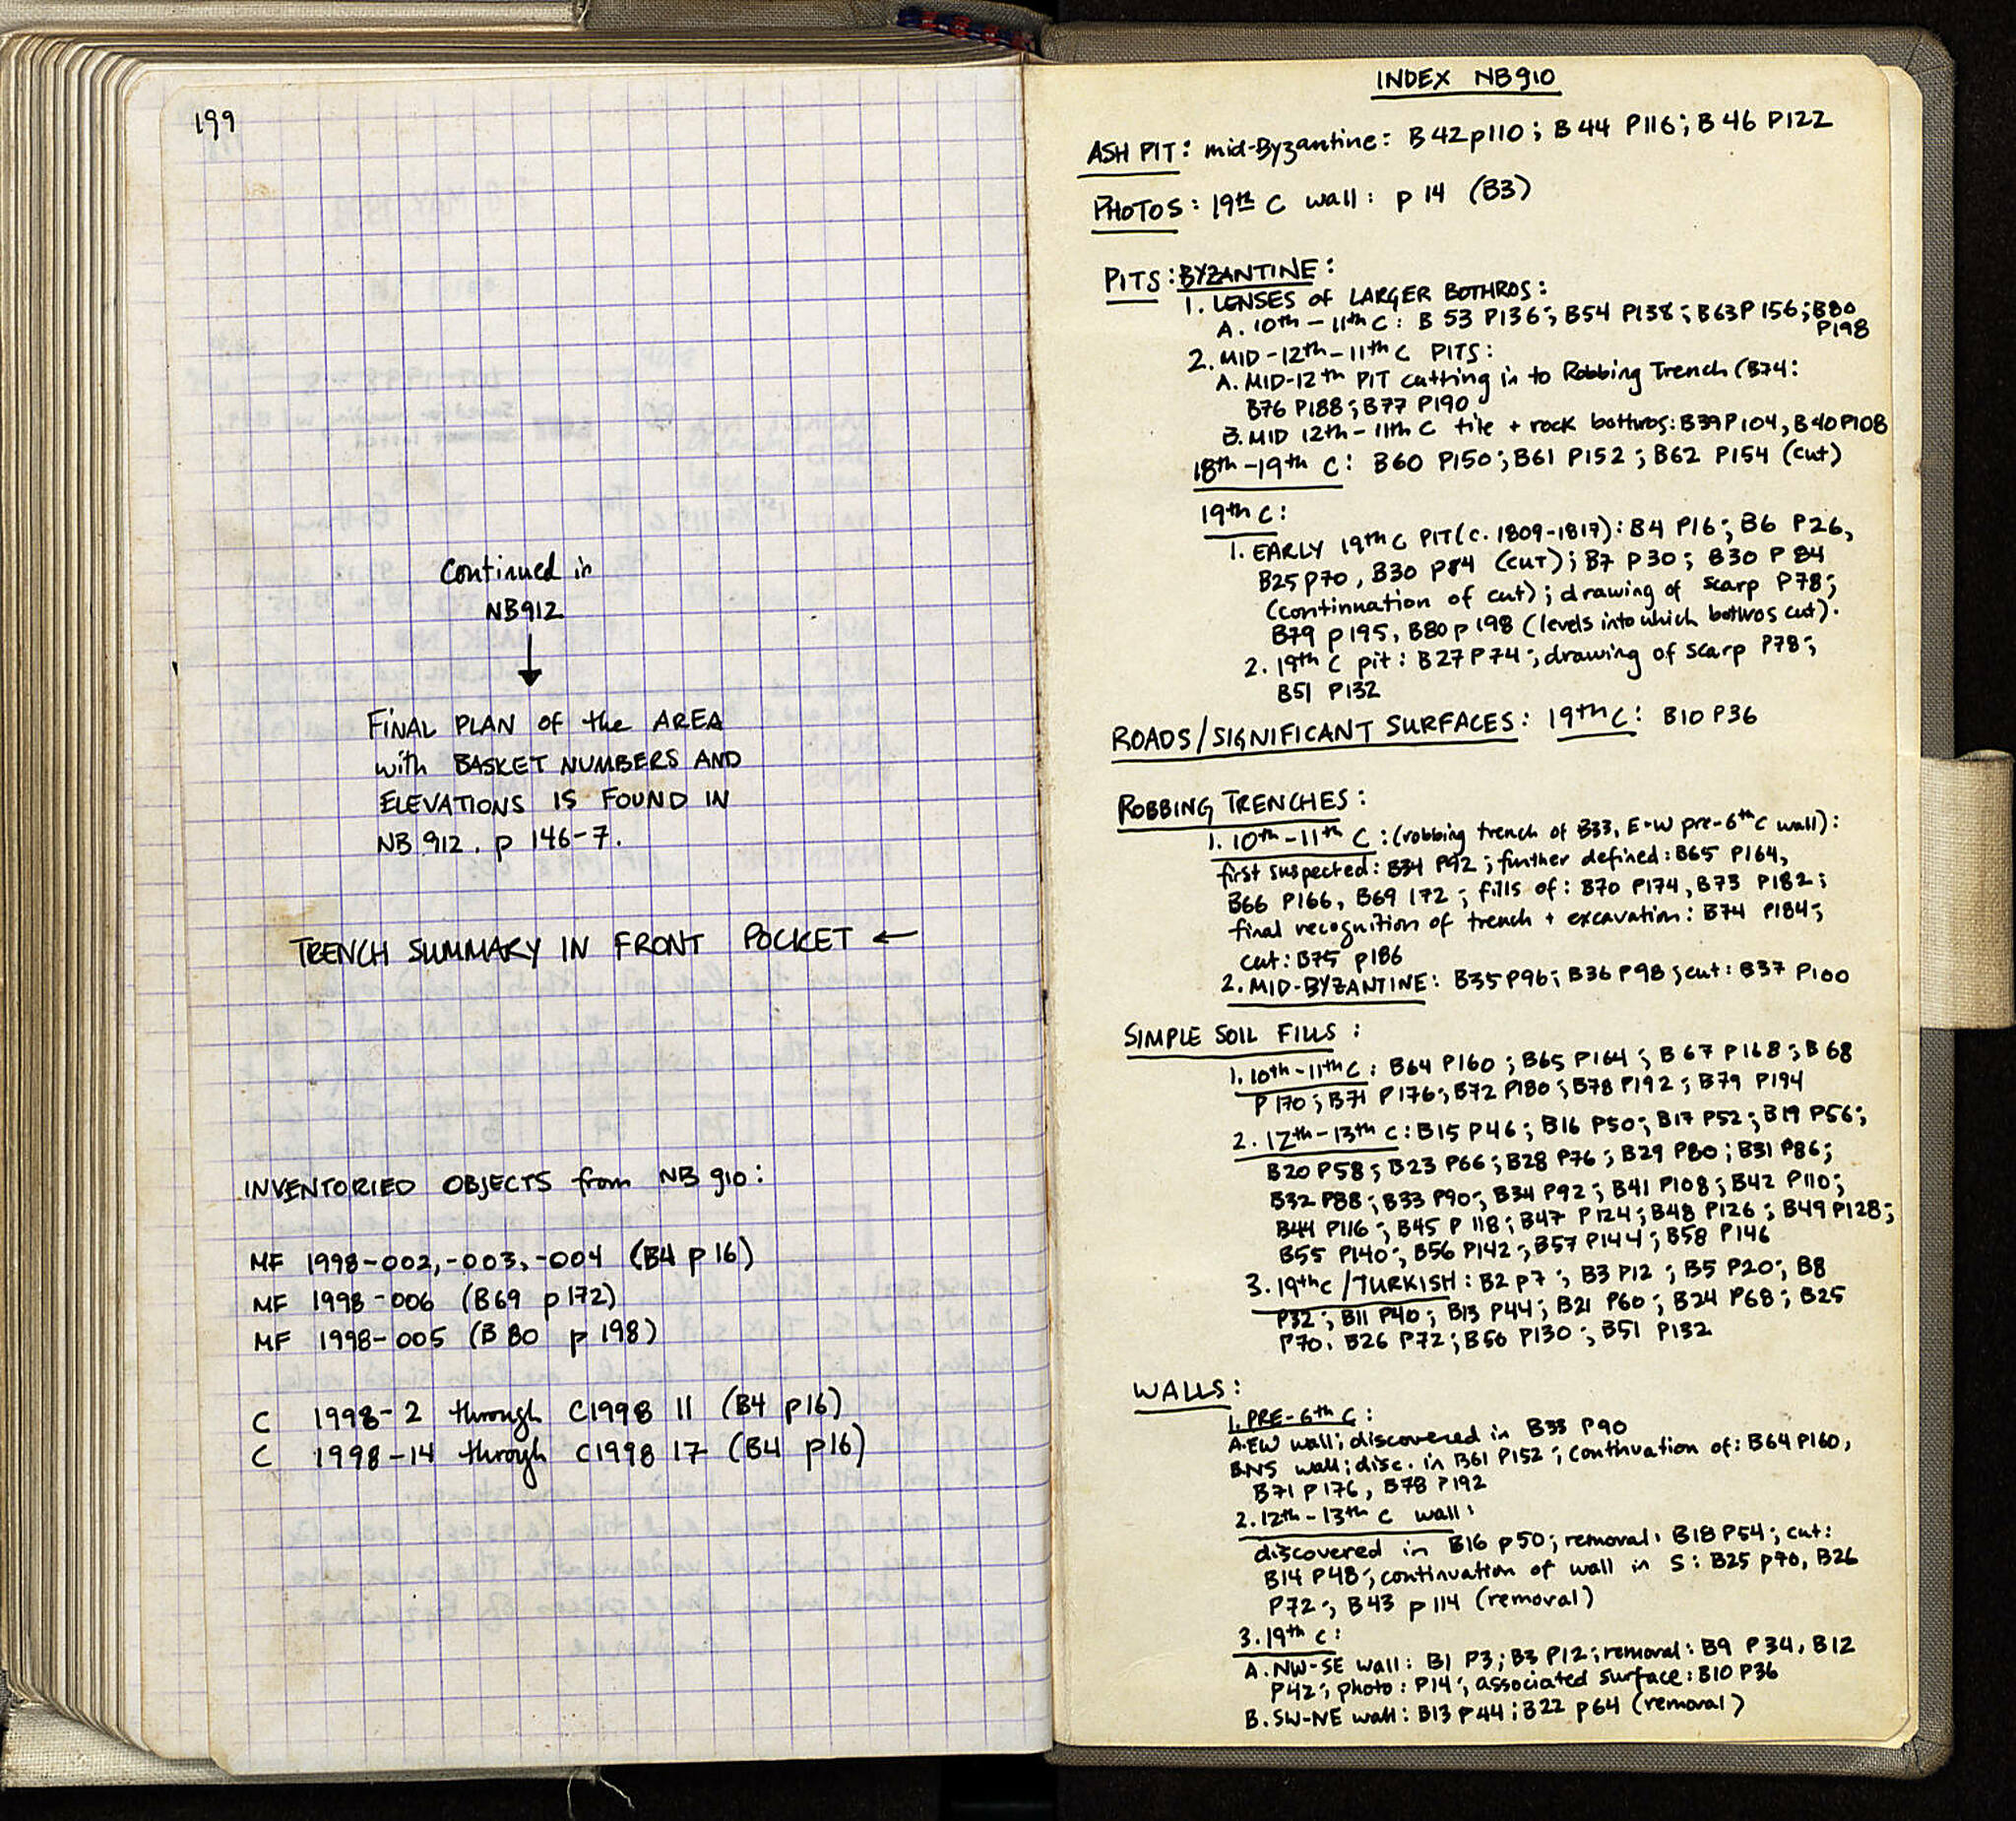 199
Continued in
NB912
↓
FINAL PLAN of the AREA
with BASKET NUMBERS AND
ELEVATIONS IS FOUND IN
NB 912. p 146-7.
TRENCH SUMMARY IN FRONT POCKET ←
INVENTORIED OBJECTS from NB 910:
MF 1998-002, -003, -004 (B4 p 16)
MF 1998-006 (B69 p172)
MF 1998-005 (B 80 p 198)
C 1998-2 through C1998 11 (B4 p16)
C 1998-14 through C1998 17 (B4 p16)
INDEX NB910
ASH PIT: mid-Byzantine: B42 p110; B44 P116; B46 P122
PHOTOS: 19th C wall: p 14 (B3)
PITS: BYZANTINE:
1. LENSES of LARGER BOTHROS:
A. 10th-11th C: B 53 P136; B54 P138; B63 P156; B80
P198
2. MID-12th-11th C PITS:
A. MID-12th PIT cutting in to Robbing Trench (B74:
B76 P188; B77 P190
B. MID 12th-11th C tile + rock bothros: B39 P104, B40 P108
18th-19th C: B60 P150; B61 P152; B62 P154 (cut)
19th C:
1. EARLY 19th C PIT (c. 1809-1817): B4 P16; B6 P26,
B25 p70, B30 p84 (CUT); B7 P30; B30 P84
(continuation of cut); drawing of scarp P78;
B79 p195, B80 p198 (levels into which bothros cut).
2. 19th C pit: B27 P74; drawing of scarp P78;
B51 P132
ROADS/SIGNIFICANT SURFACES: 19th C: B10 P36
ROBBING TRENCHES:
1. 10th-11th C: (robbing trench of B33, E-W pre-6th C wall):
first suspected: B34 P92; further defined: B65 P164,
B66 P166, B69 172; fills of: B70 P174, B73 P182;
final recognition of trench + excavation: B74 P184;
cut: B75 p186
2. MID-BYZANTINE: B35 P96; B36 P98; cut: B37 P100
SIMPLE SOIL FILLS:
1. 10th-11th C: B64 P160; B65 P164; B67 P168; B68
P170; B71 P176; B72 P180; B78 P192; B79 P194
2. 12th-13th C: B15 P46; B16 P50; B17 P52; B19 P56;
B20 P58; B23 P66; B28 P76; B29 P80; B31 P86;
B32 P88; B33 P90; B34 P92; B41 P108; B42 P110;
B44 P116; B45 P118; B47 P124; B48 P126; B49 P128;
B55 P140; B56 P142; B57 P144; B58 P146
3. 19th C/TURKISH: B2 P7; B3 P12; B5 P20; B8
P32; B11 P40; B13 P44; B21 P60; B24 P68; B25
P70. B26 P72; B50 P130; B51 P132
WALLS:
1. PRE-6th C:
A. EW wall; discovered in B33 P90
B. NS wall; disc. in B61 P152; continuation of: B64 P160,
B71 P176, B78 P192
2. 12th-13th C wall:
discovered in B16 p50; removal: B18 P54; cut:
B14 P48; continuation of wall in S: B25 p70, B26
P72; B43 p114 (removal)
3. 19th C:
A. NW-SE wall: B1 P3; B3 P12; removal: B9 P34, B12
P42; photo: P14; associated surface: B10 P36
B. SW-NE wall: B13 P44; B22 p64 (removal)